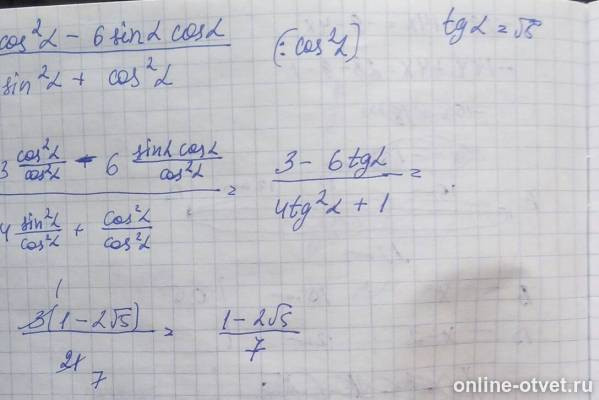 cos²α - 6 sinα cosα / sin²α + cos²α (: cos²α) tgα = √5
3 cos²α/cos²α - 6 sinα cosα/cos²α / 4 sin²α/cos²α + cos²α/cos²α = 3 - 6tgα / 4tg²α + 1 =
1
3(1 - 2√5) / 21 = 1 - 2√5 / 7
7
online-otvet.ru